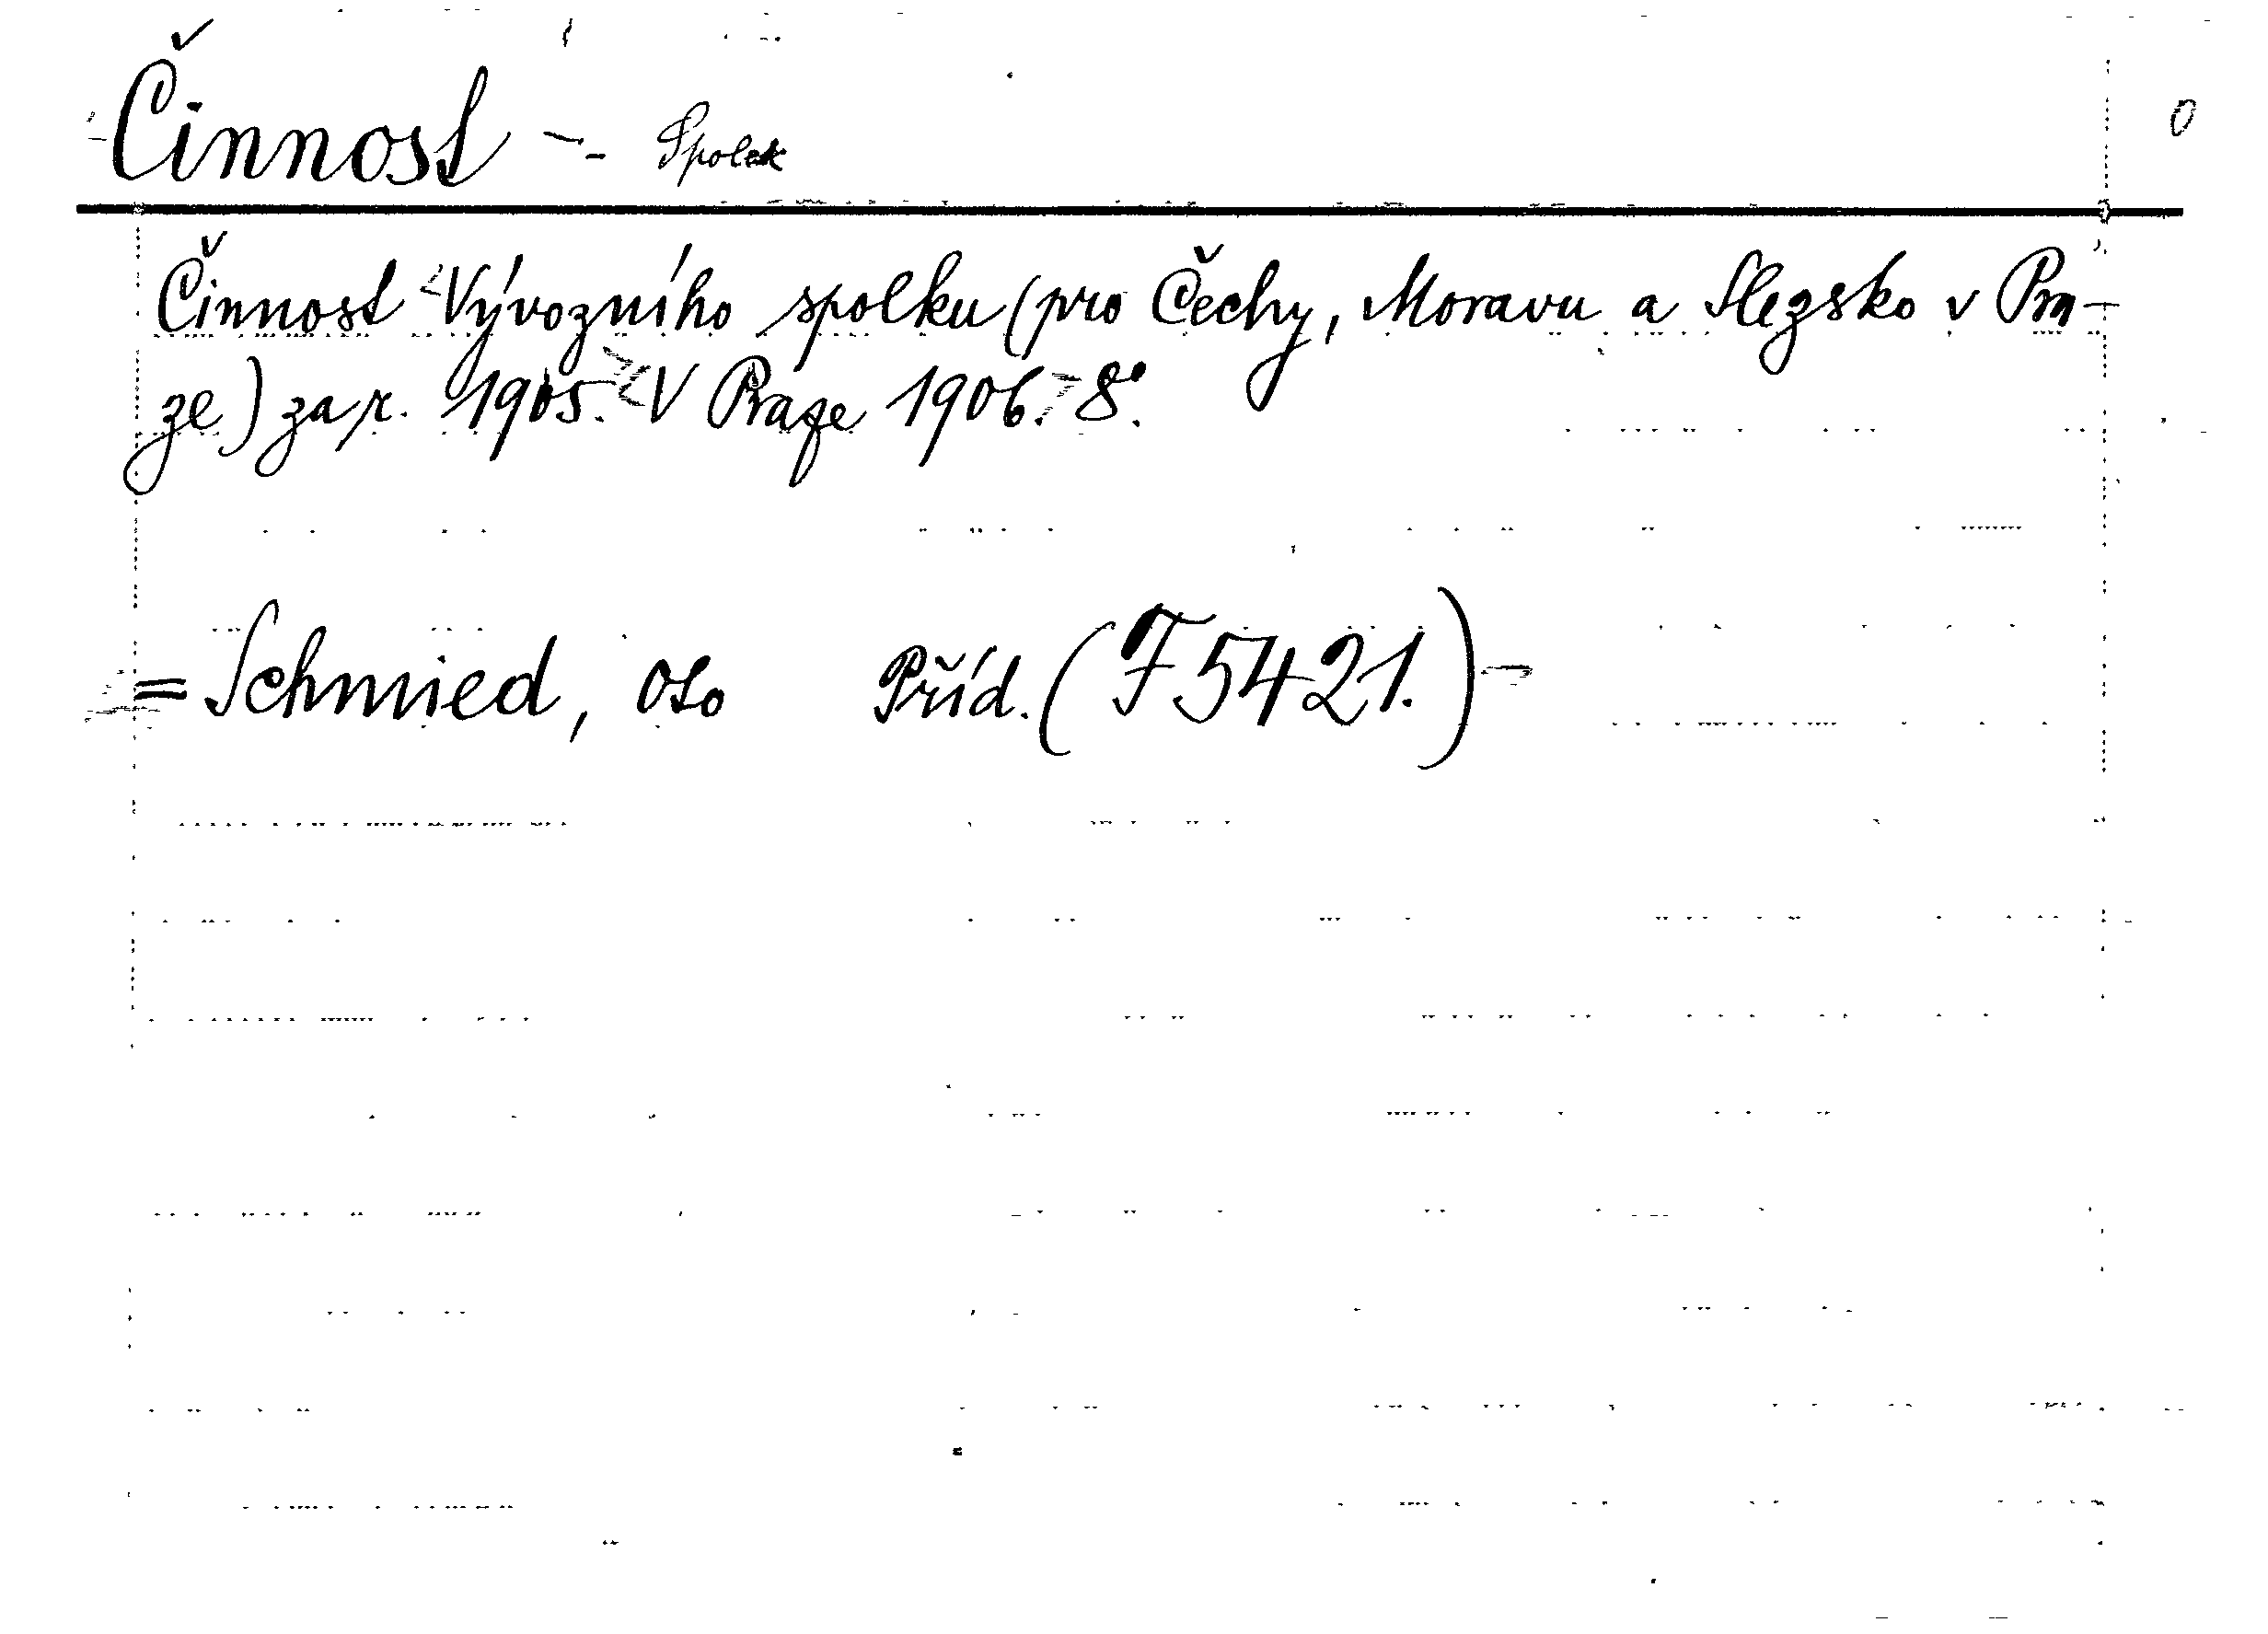 Činnost - Spolek
0
Činnost Vývozního spolku (pro Čechy, Moravu a Slezsko v Pra-
ze) za r. 1905. V Praze 1906. 8°.
= Schmied, Oto Příd. (F 5421.)